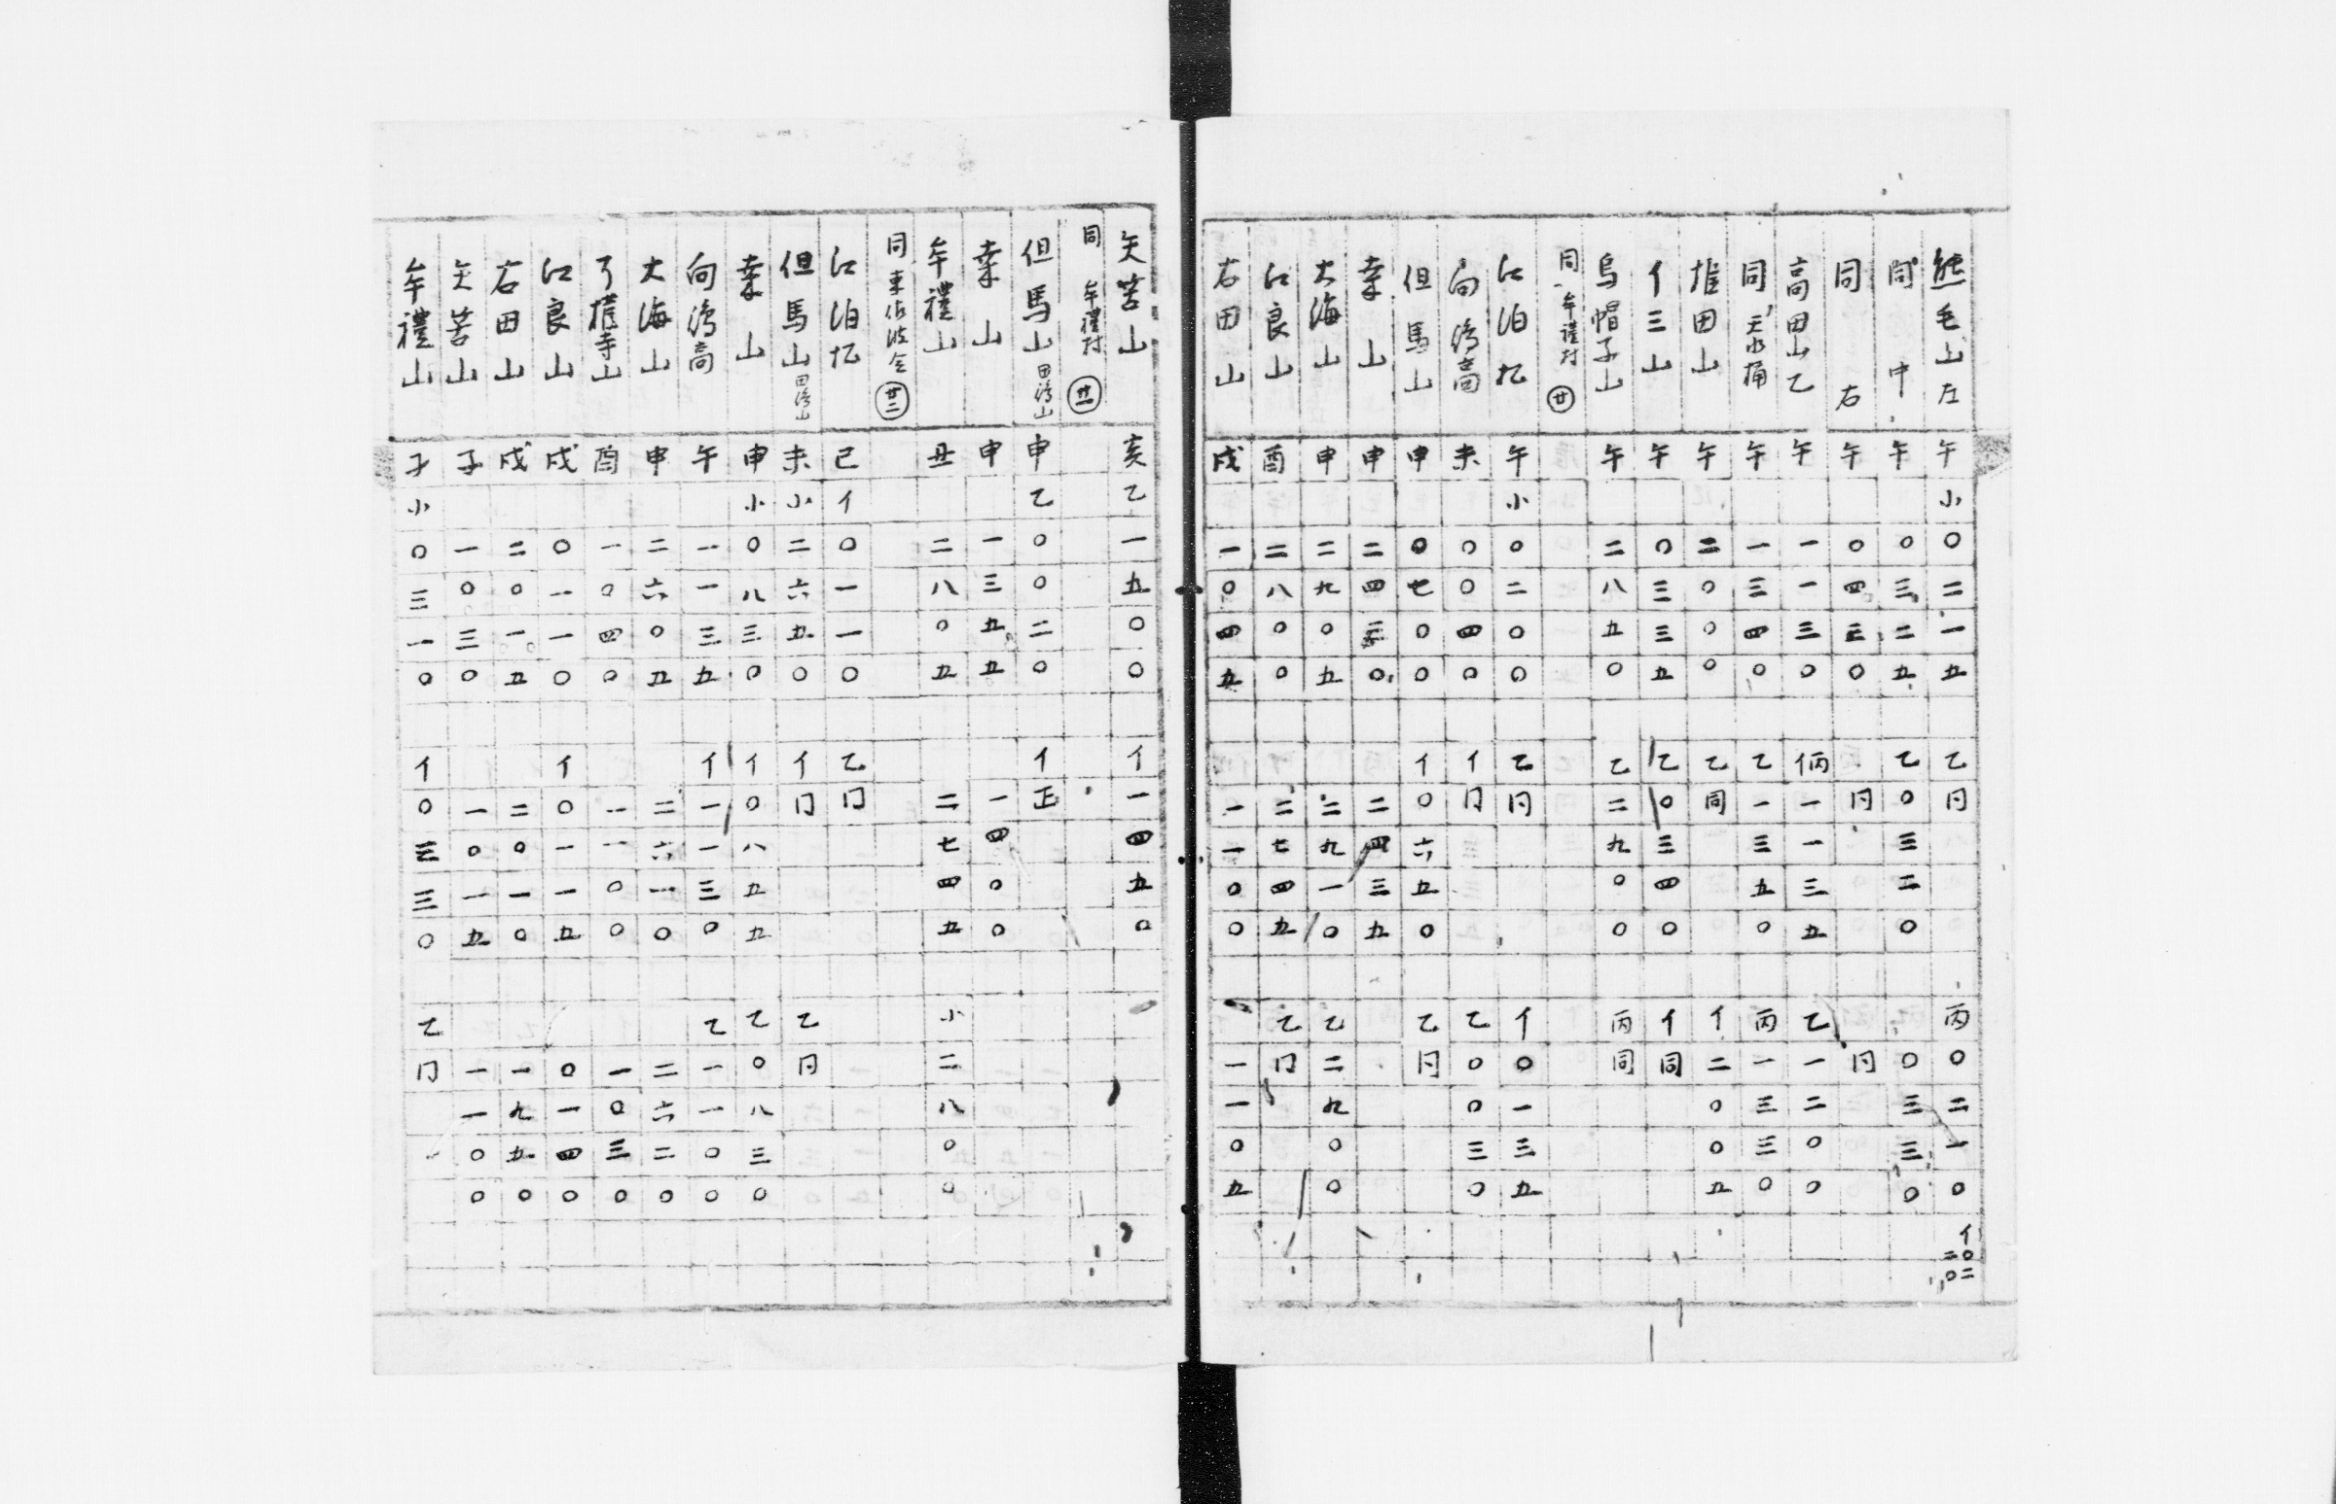 熊毛山左 午 小 〇 二 一 五 乙 同 丙 〇 二 一 〇 イ 〇二 二〇
同 中 午 〇 三 二 五 乙 〇 三 二 〇 〇 三 三 〇
同 右 午 〇 四 三 〇 同 同
高田山乙 午 一 一 三 〇 丙 一 一 三 五 乙 一 二 〇 〇
同 天水桶 午 一 三 四 〇 乙 一 三 五 〇 丙 一 三 三 〇
堆田山 午 二 〇 〇 〇 乙 同 イ 二 〇 〇 五
イ三山 午 〇 三 三 五 乙 〇 三 四 〇 イ 同
烏帽子山 午 二 八 五 〇 乙 二 九 〇 〇 丙 同
同 牟禮村 廿
江泊 午 小 〇 二 〇 〇 乙 同 イ 〇 一 三 五
向 高 未 〇 〇 四 〇 イ 同 乙 〇 〇 三 〇
但馬山 申 〇 七 〇 〇 イ 〇 六 五 〇 乙 同
桒山 申 二 四 三 〇 二 四 三 五
大海山 申 二 九 〇 五 二 九 一 〇 乙 二 九 〇 〇
江良山 酉 二 八 〇 〇 二 七 四 五 乙 同
右田山 戌 一 〇 四 五 一 一 〇 〇 一 一 〇 五
矢筈山 亥 乙 一 五 〇 〇 イ 一 四 五 〇
同 牟禮村 廿一
但馬山 田 山 申 乙 〇 〇 二 〇 イ 正
桒山 申 一 三 五 五 一 四 〇 〇
牟禮山 丑 二 八 〇 五 二 七 四 五 小 二 八 〇 〇
同 東佐波令 廿二
江泊 巳 イ 〇 一 一 〇 乙 同
但馬山 田 山 未 小 二 六 五 〇 イ 同 乙 同
桒山 申 小 〇 八 三 〇 イ 〇 八 五 五 乙 〇 八 三 〇
向 高 午 一 一 三 五 イ 一 一 三 〇 乙 一 一 〇 〇
大海山 申 二 六 〇 五 二 六 一 〇 二 六 二 〇
寺山 酉 一 〇 四 〇 一 一 〇 〇 一 〇 三 〇
江良山 戌 〇 一 一 〇 イ 〇 一 一 五 〇 一 四 〇
右田山 戌 二 〇 一 五 二 〇 一 〇 一 九 五 〇
矢筈山 子 一 〇 三 〇 一 〇 一 五 一 一 〇 〇
牟禮山 子 小 〇 三 一 〇 イ 〇 三 三 〇 乙 同